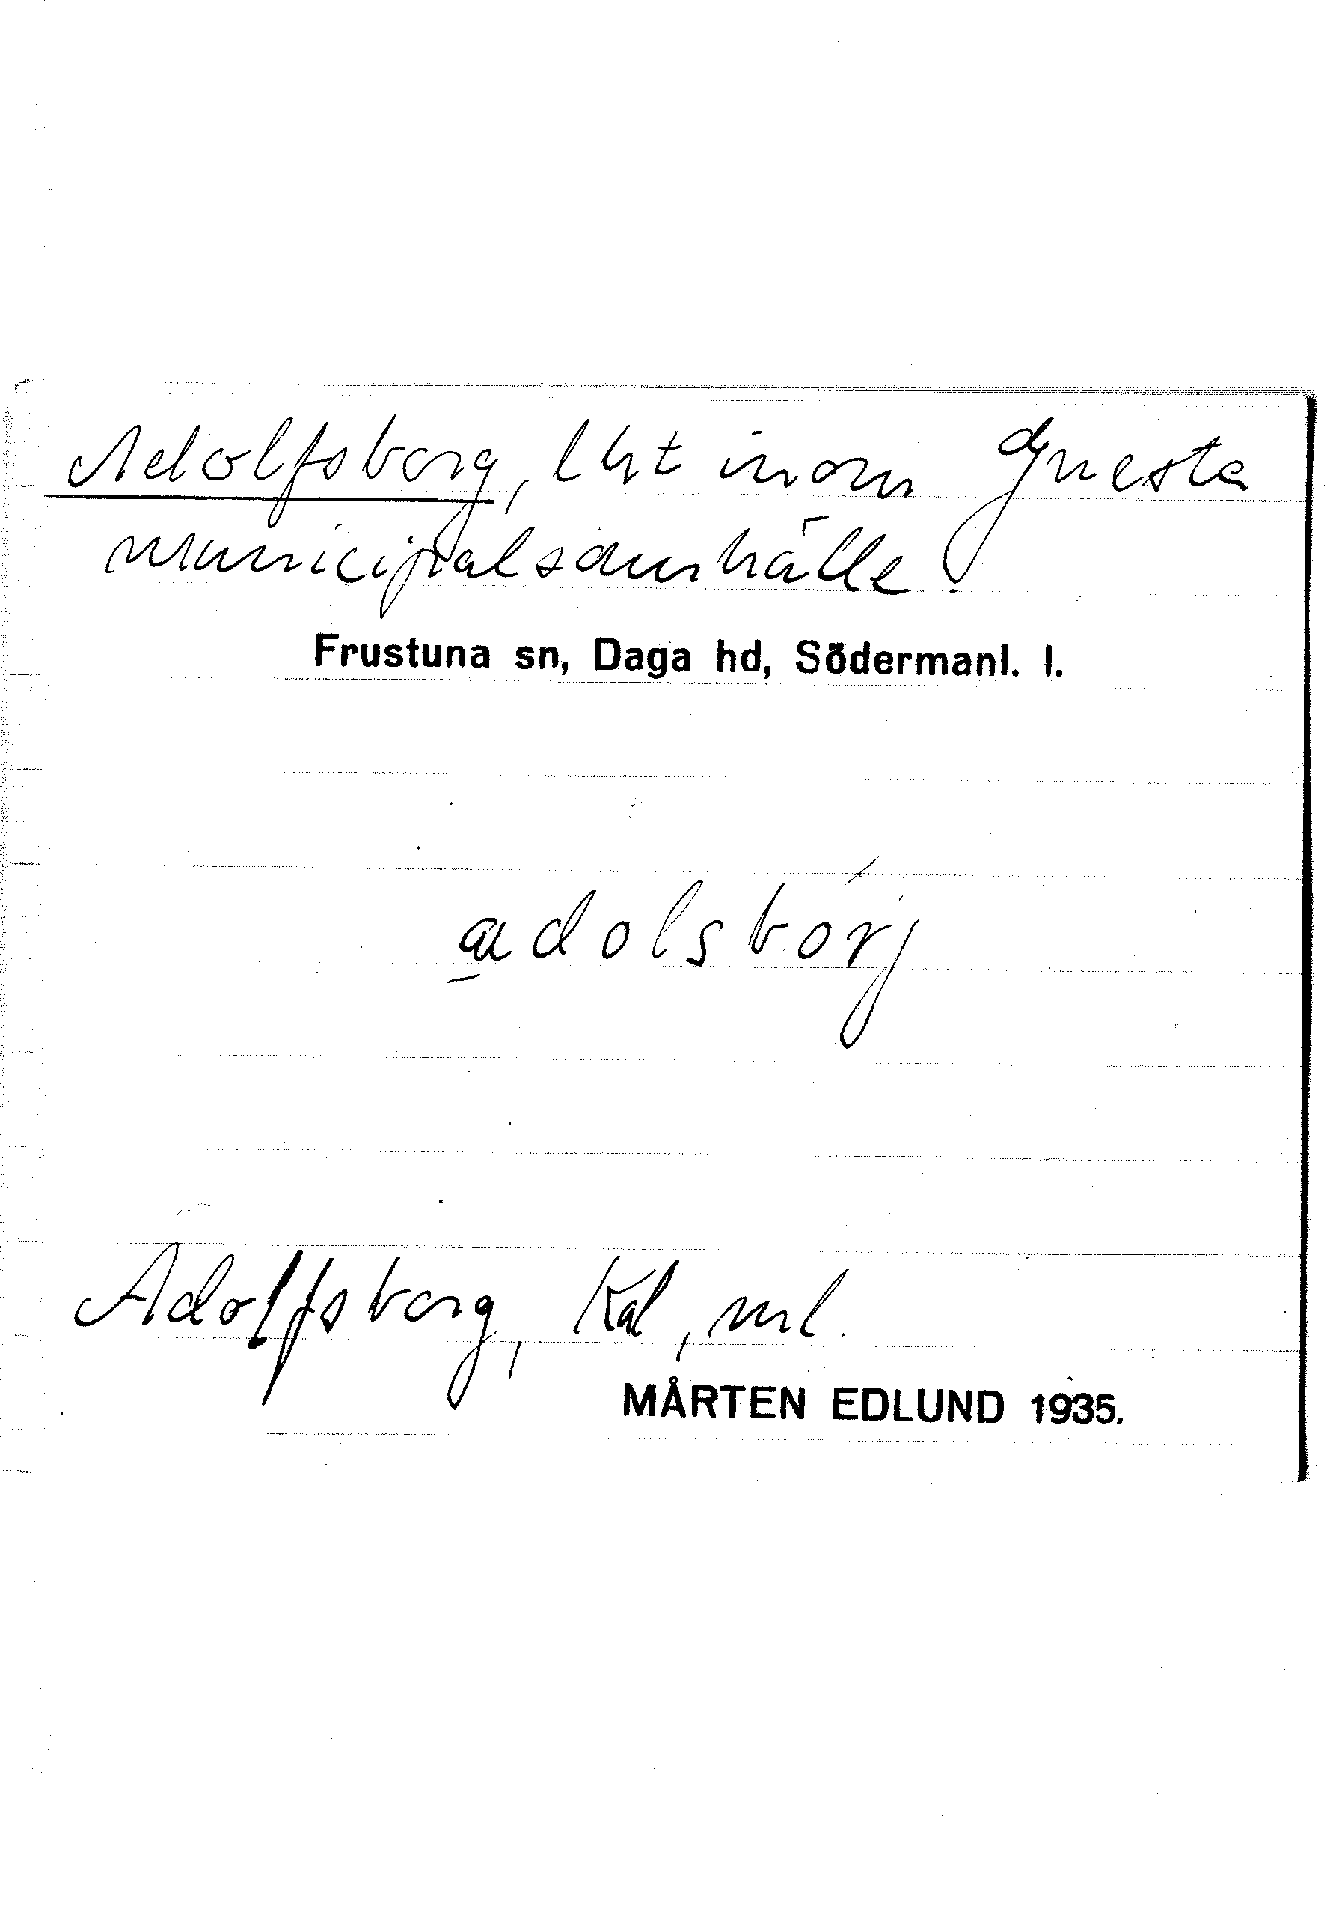 Adolfsborg, lht inom Gnesta
municipalsamhälle.
Frustuna sn, Daga hd, Södermanl. l.
adolsbórj
Adolfsborg, Kal, ml.
MÅRTEN EDLUND 1935.